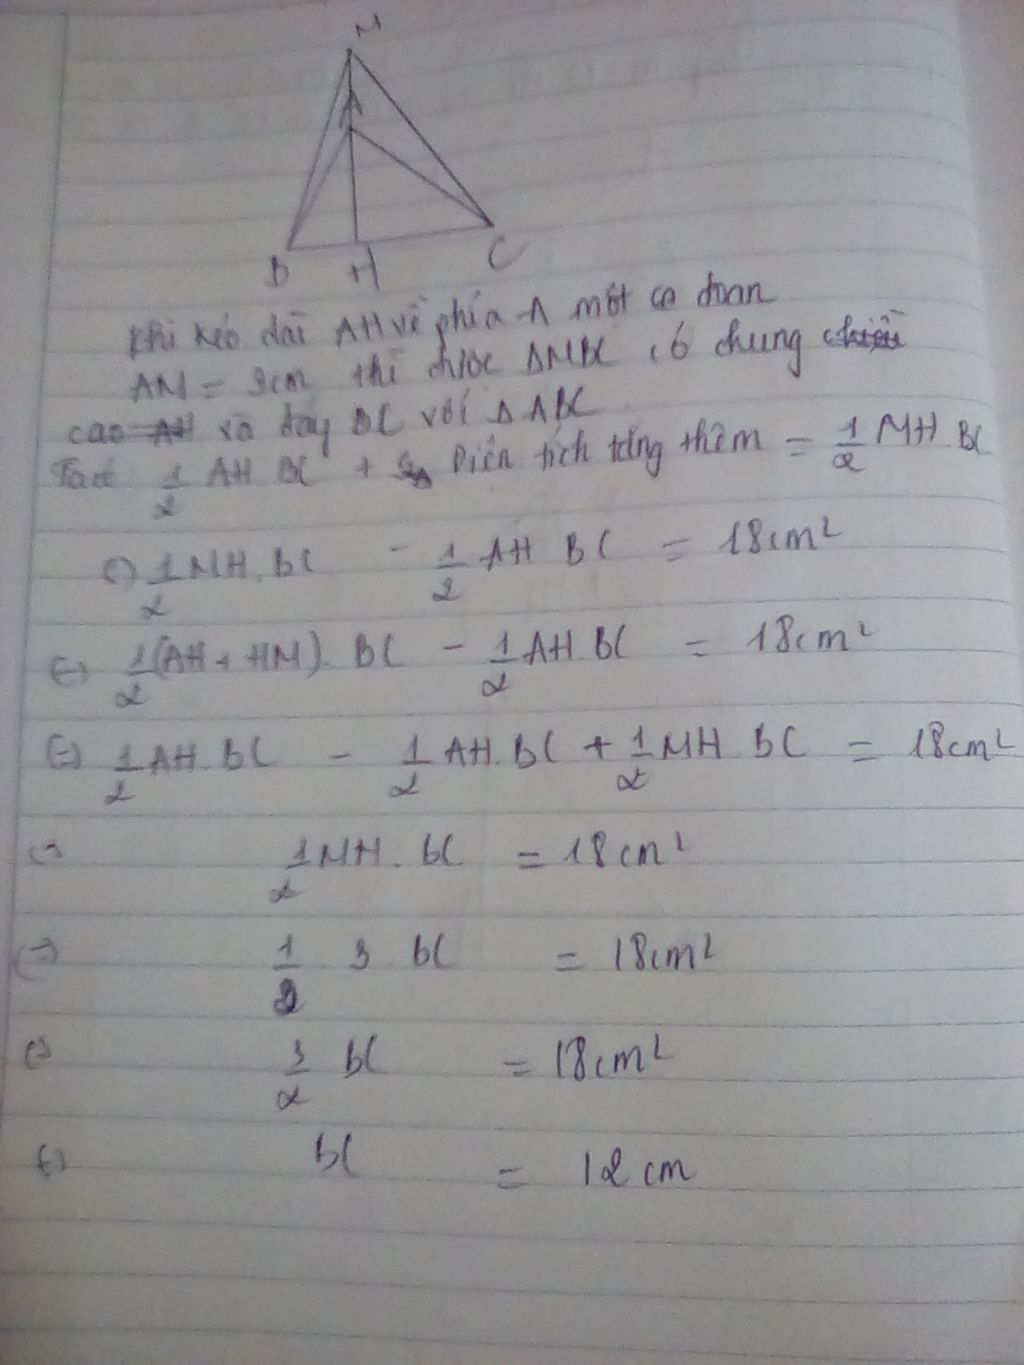 M
A
B H C
Khi kéo dài AH về phía A một đoạn
AM = 3cm thì được ΔMBC có chung
cao AH và đáy BC với ΔABC
1/2 AH BC + Diện tích tăng thêm = 1/2 MH. BC
(=) 1/2 MH. BC - 1/2 AH BC = 18cm²
(=) 1/2 (AH + HM). BC - 1/2 AH. BC = 18cm²
(=) 1/2 AH. BC - 1/2 AH. BC + 1/2 MH BC = 18cm²
(=) 1/2 MH. BC = 18cm²
(=) 1/2 3 BC = 18cm²
(=) 3/2 BC = 18cm²
(=) BC = 12cm